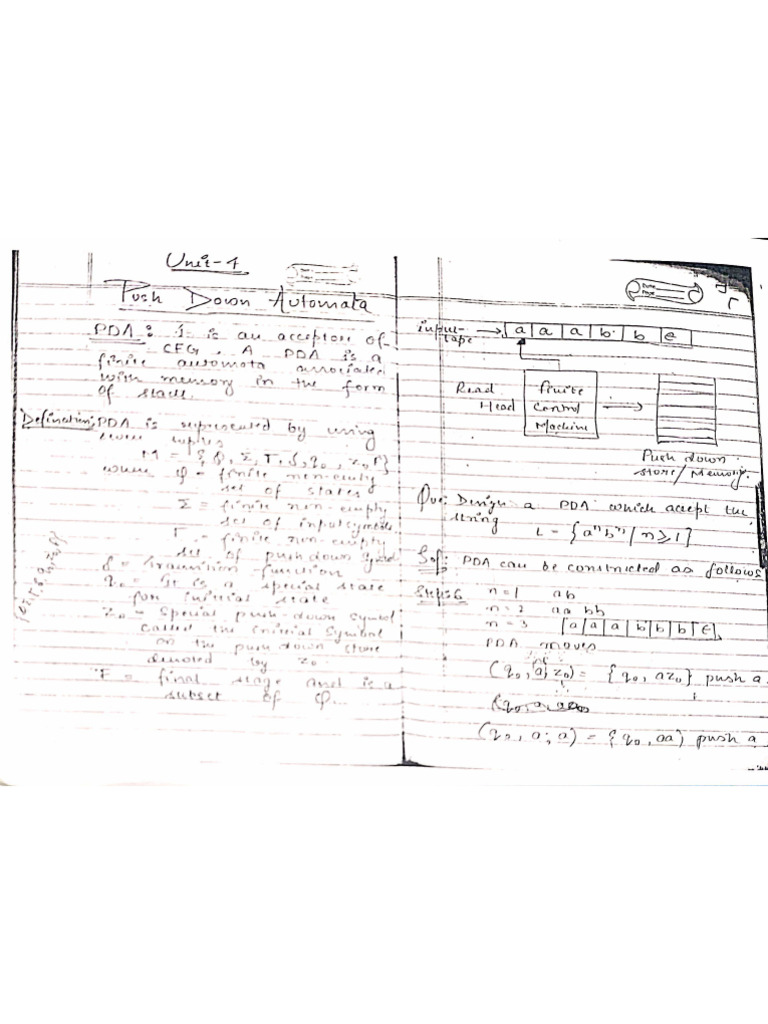 Unit-4
Push Down Automata
PDA: It is an acceptore of
CFG. A PDA is a
finite automata associated
with memory in the form
of stack.
Defination: PDA is represented by using
seven tuples
M = {Q, Σ, Γ, δ, q0, z0 F}
where Q - finite non-emty
set of states
Σ = finite non-empty
set of input symbols
Γ - finite non-empty
set of pushdown
δ = Transition function
q0 - It is a special state
for initial state
z0 - special push-down symbol
called the initial symbol
on the push down store
denoted by z0.
F = final stage and is a
subset of Q.
input tape → a a a b b ϵ
Read Head
finite control Machine
Push down store/Memory.
Que: Design a PDA which accept the
string L = {a^n b^n / n ≥ 1}
Sol: PDA can be constructed as follows
Steps:
n = 1 ab
n = 2 aa bb
n = 3 a a a b b b ϵ
PDA moves
(q0, a, z0) = {q0, az0} push a
(q0, a,
(q0, a, a) = {q0, aa) push a